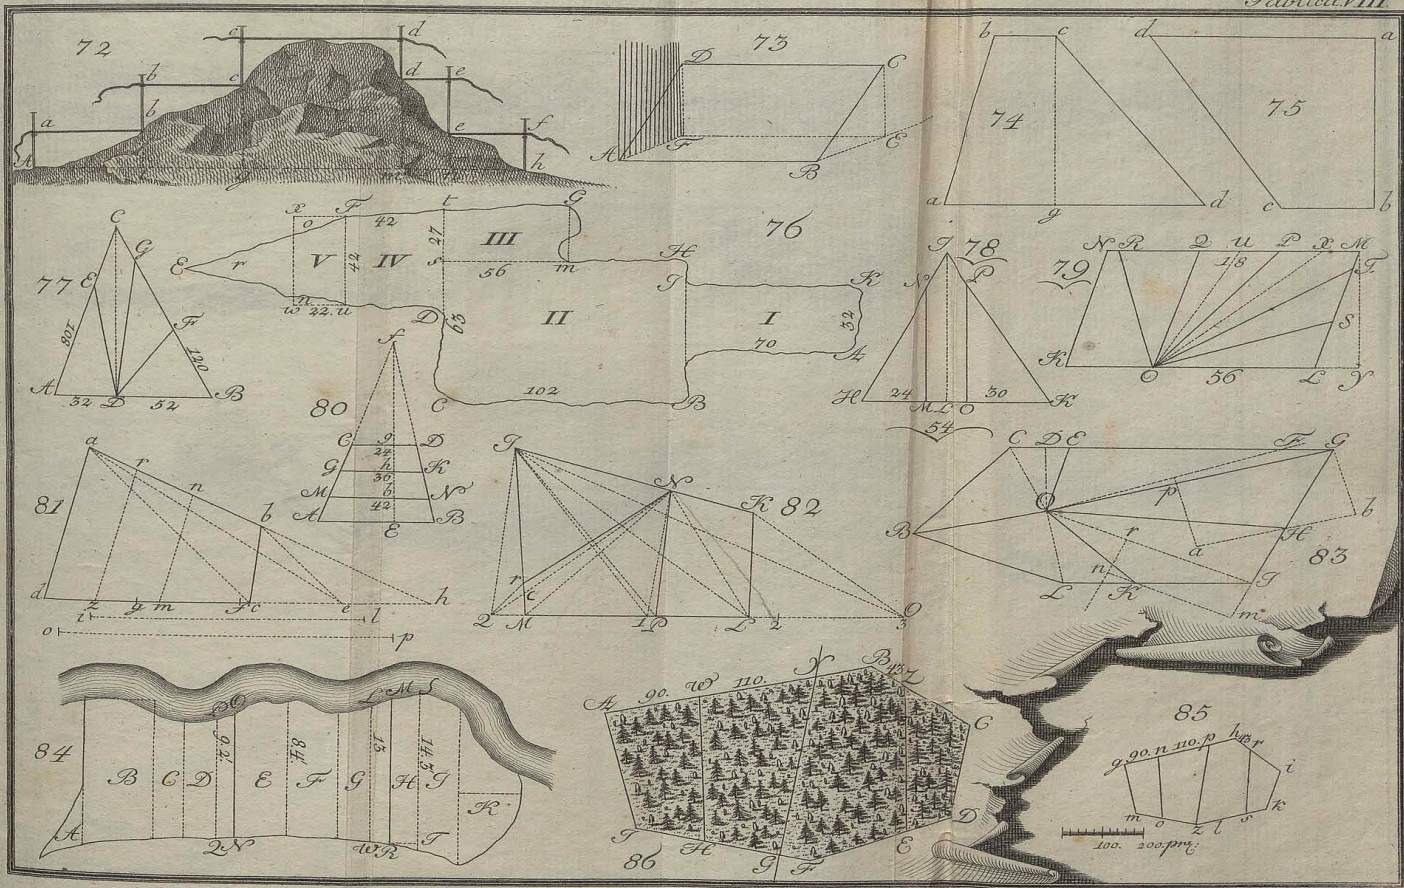 Tabula VIII
72
e d
b c d e
a b e f
A i g m n h
73
D C
A F E
B
74
b c
a g d
75
d a
c b
76
x F t G
o 42 27 III
E r V 42 IV s 56 m H
n I K
w 22 u D 63 II I 32
70 A
C 102 B
77
C
E G
108 F 120
A 32 D 52 B
78
I
N P
H 24 M L O 30 K
54
79
N R Q U P X M
18 T
S
K O 56 L Y
80
f
C 9 D
24
G h K
36
M b N
42
A E B
81
a
r
n
b
d z g m f c e h
i l
o p
82
I
N
K
r
c
2 M 1 P L 2 3 O
83
C D E F G
O p b
B H
r a
n
L K I
m
84
P O L M S
92 84 13 14.3
B C D E F G H I
K
A Q N W R T
85
g 90. n 110. p h 13 r
i
m o z l s k
100. 200 prz:
86
A 90. W 110. Y B 43 Z
C
D
I H G F E